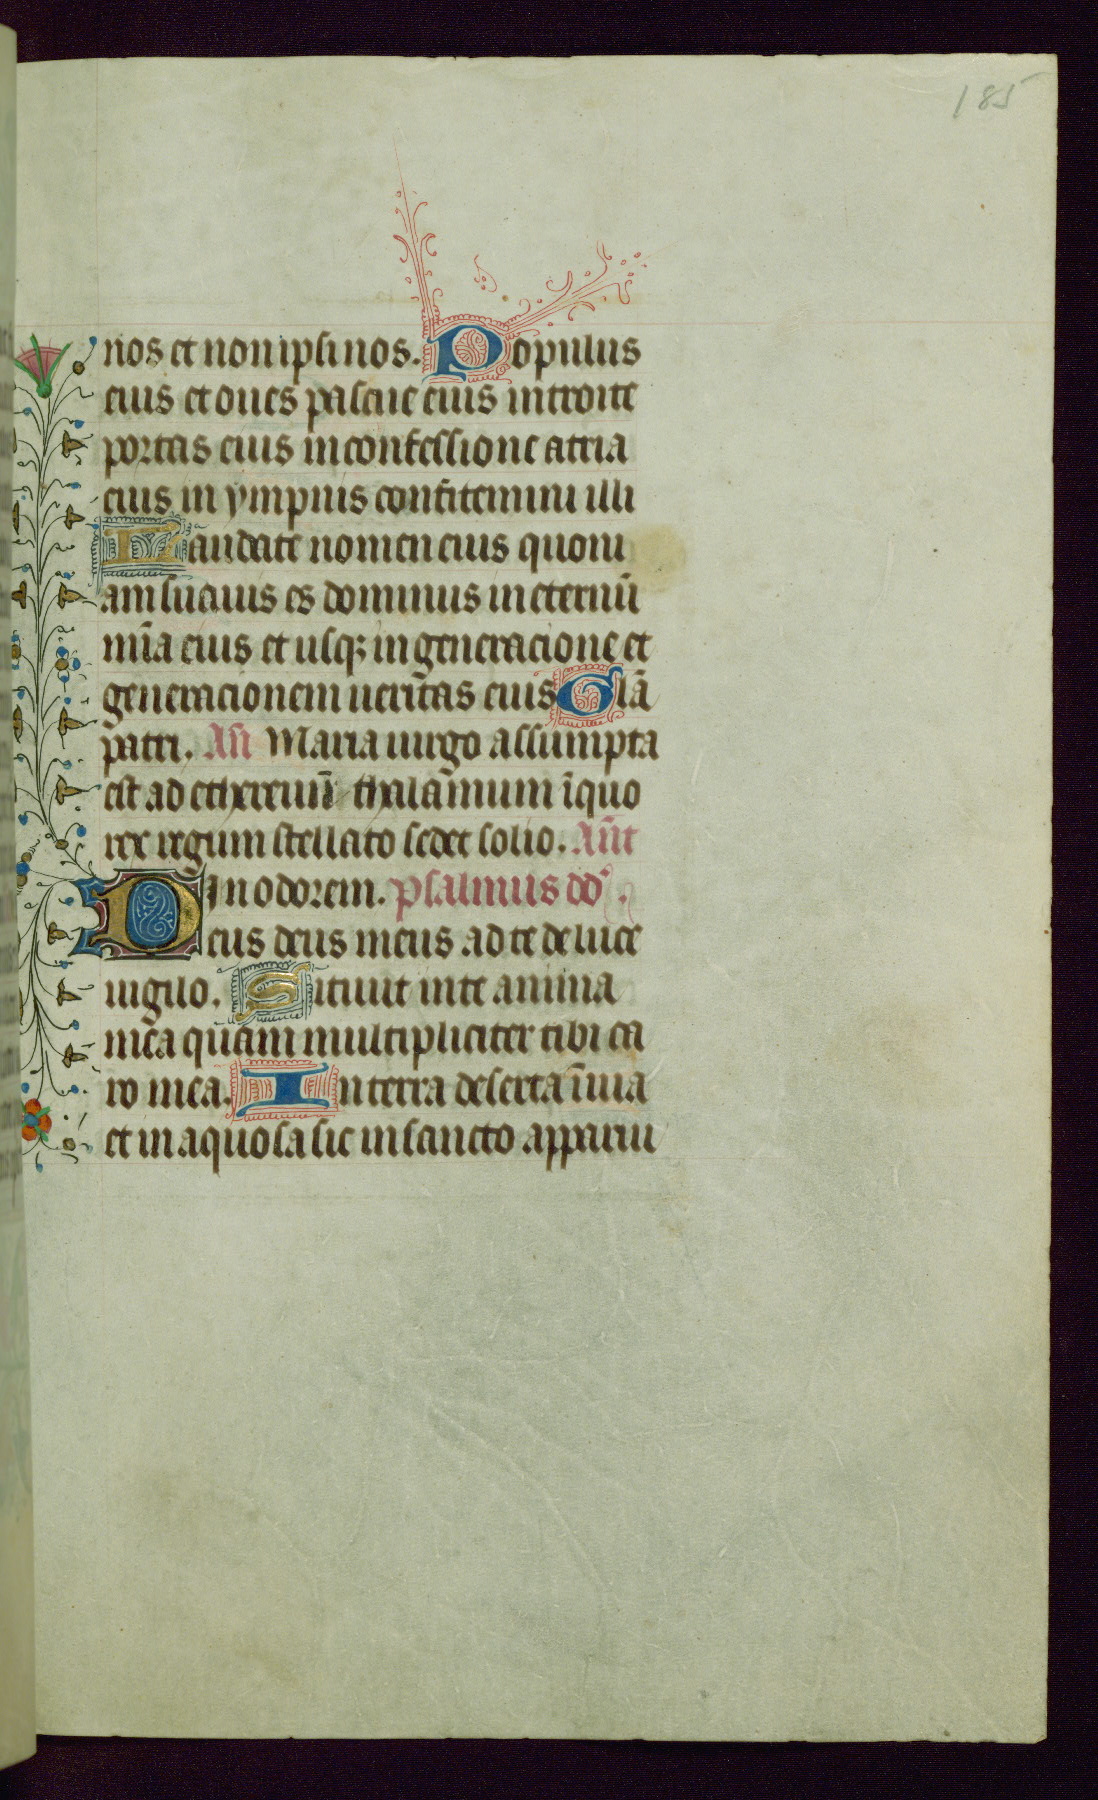 185
nos et non ipsi nos. Populus
eius et oues pascue eius introite
portas eius in confessione atria
eius in ympnis confitemini illi
Laudate nomen eius quoni
am suauis es dominus in eternū
mīa eius et usqꝫ in generacione et
generacionem ueritas eius Glā
patri. Añ Maria uirgo assumpta
est ad ethereuū thalāmum īquo
rex regum stellato sedet solio. Añt
In odorem. psalmus dd.
Deus deus meus ad te de luce
uigilo. Sitiuit in te anima
mea quam multipliciter tibi ca
ro mea. In terra deserta īuia
et in aquosa sic in sancto apparui